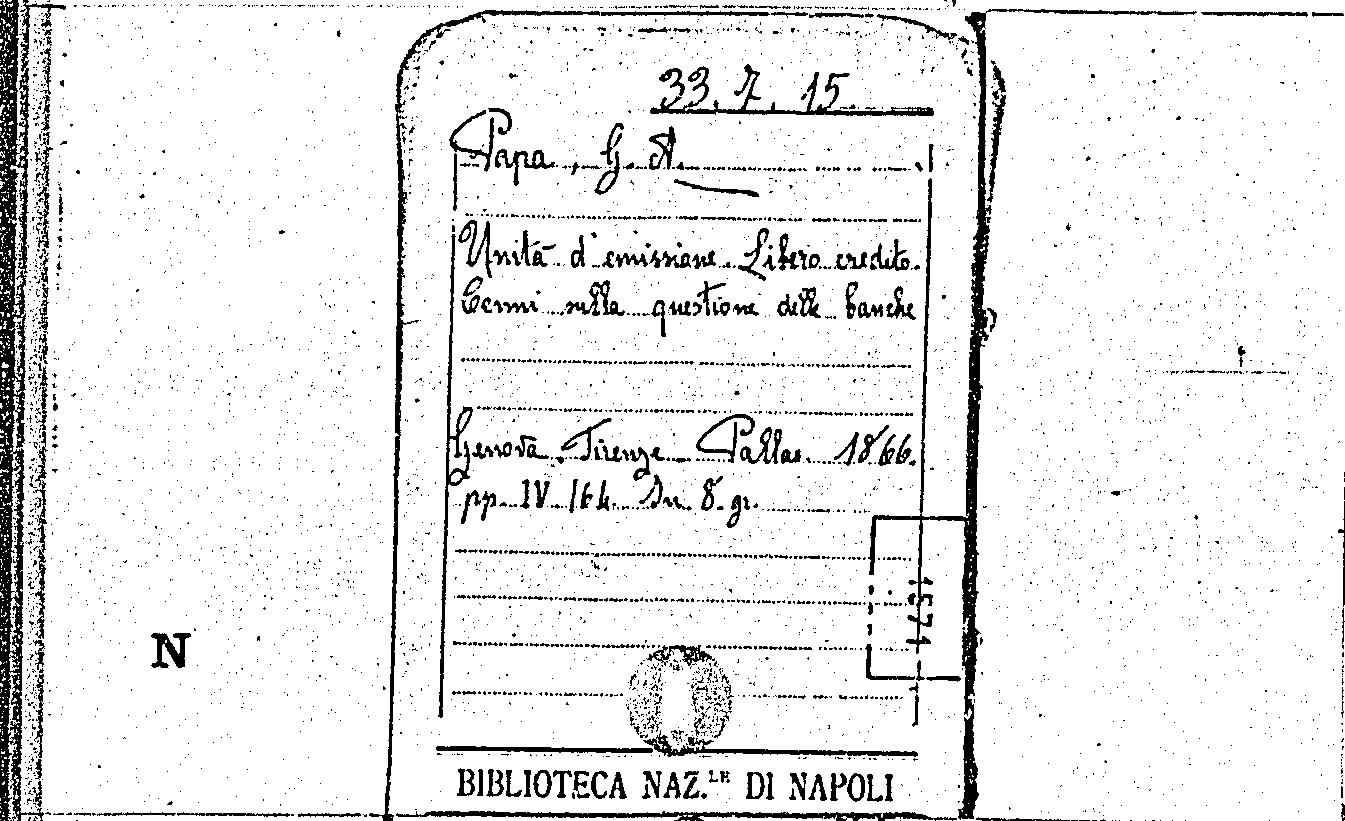 33. 7. 15
Papa, G. A.
Unità d'emissione. Libero credito.
Cenni sulla questione delle banche
Genova. Firenze. Pallas. 1866.
pp. IV. 164. In 8. gr.
1571
N
BIBLIOTECA NAZ.LE DI NAPOLI